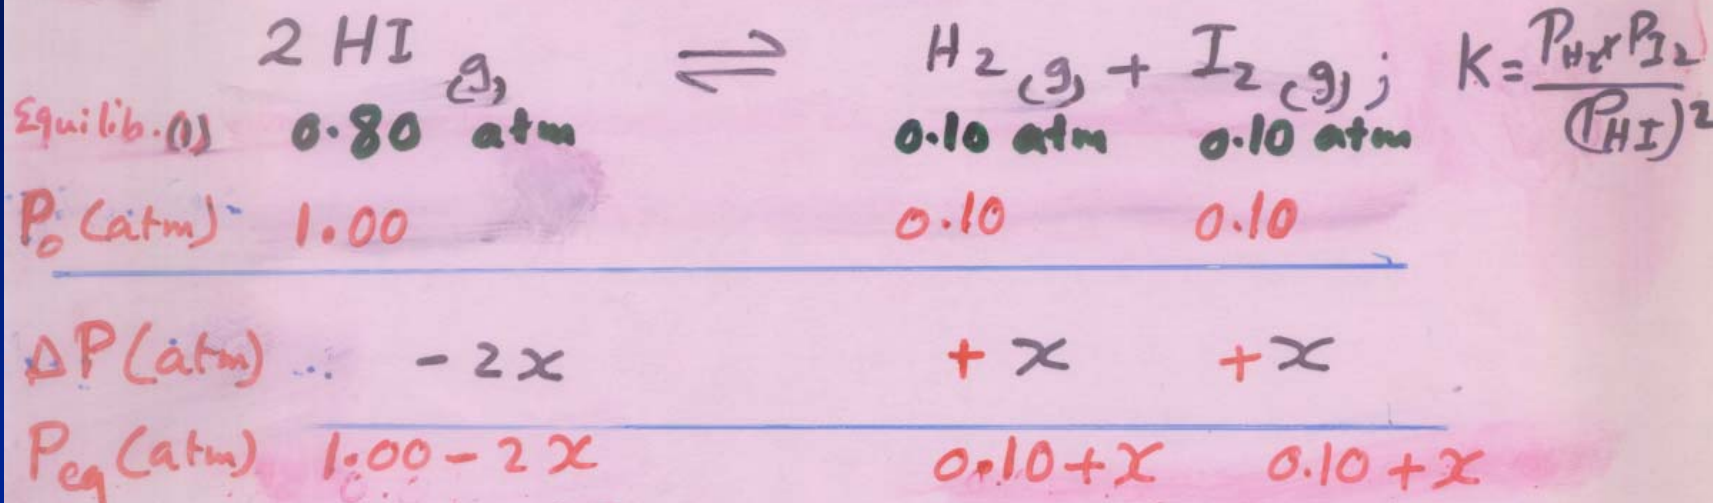 2 HI (g) ⇌ H2 (g) + I2 (g) ; K = PH2 × PI2 / (PHI)²
Equilib. (1) 0.80 atm 0.10 atm 0.10 atm
P₀ (atm) 1.00 0.10 0.10
ΔP (atm) - 2x + x + x
Peq (atm) 1.00 - 2x 0.10 + x 0.10 + x